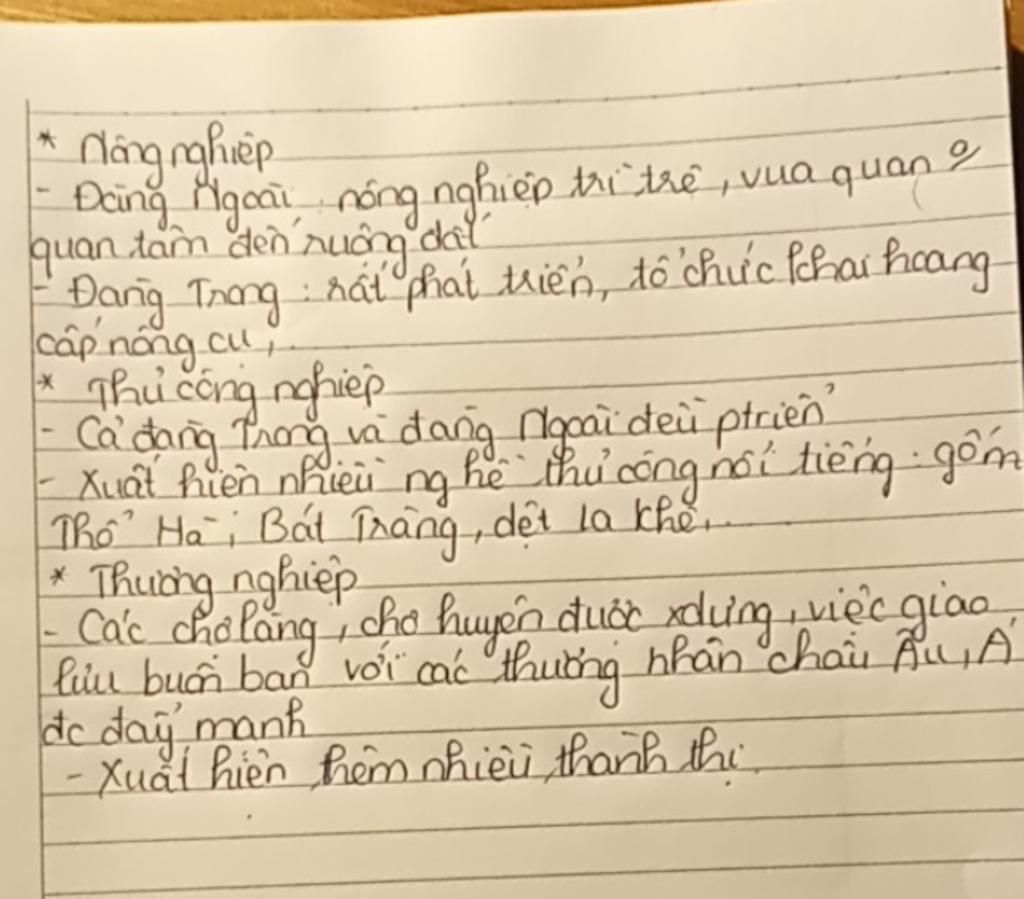 * Nông nghiệp
- Đàng Ngoài: nông nghiệp trì trệ, vua quan
quan tâm đến ruộng đất
- Đàng Trong: rất phát triển, tổ chức khai hoang
cấp nông cụ,...
* Thủ công nghiệp
- Cả đàng Trong và đàng Ngoài đều ptriển
- Xuất hiện nhiều nghề thủ công nổi tiếng: gốm
Thổ Hà, Bát Tràng, dệt la khê,...
* Thương nghiệp
- Các chợ làng, chợ huyện được xdựng, việc giao
lưu buôn bán với các thương nhân châu Âu, Á
đc đẩy mạnh
- Xuất hiện thêm nhiều thành thị.